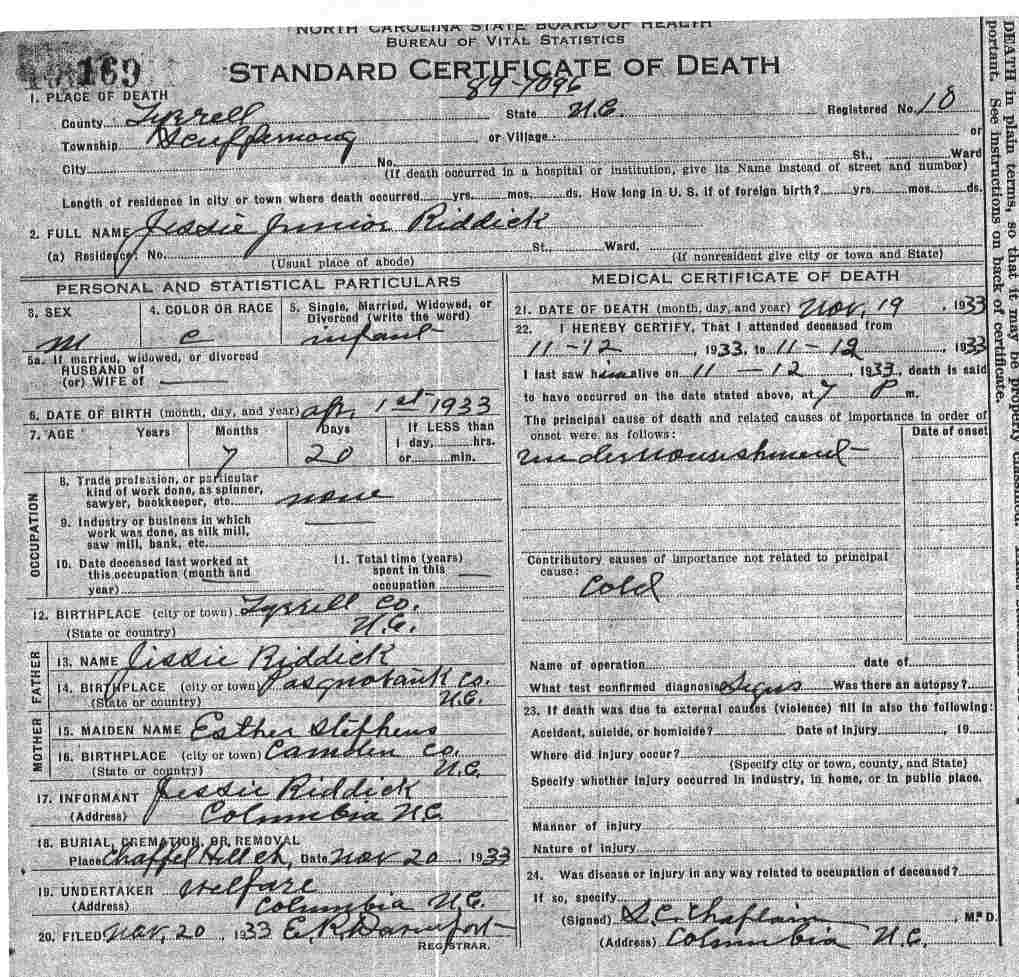 NORTH CAROLINA STATE BOARD OF HEALTH
BUREAU OF VITAL STATISTICS
169
STANDARD CERTIFICATE OF DEATH
89-1096
1. PLACE OF DEATH
County Tyrrell State N.C. Registered No. 18
Township Scuppernong or Village or
City No. St., Ward
(If death occurred in a hospital or institution, give its Name instead of street and number)
Length of residence in city or town where death occurred yrs. mos. ds. How long in U. S. if of foreign birth? yrs. mos. ds.
2. FULL NAME Jessie Junior Riddick
(a) Residence: No. St., Ward,
(Usual place of abode) (If nonresident give city or town and State)
PERSONAL AND STATISTICAL PARTICULARS
3. SEX 4. COLOR OR RACE 5. Single, Married, Widowed, or
Divorced (write the word)
M C infant
5a. If married, widowed, or divorced
HUSBAND of
(or) WIFE of
6. DATE OF BIRTH (month, day, and year) apr 1st 1933
7. AGE Years Months Days If LESS than
1 day, hrs.
or min.
7 20
OCCUPATION
8. Trade profession, or particular
kind of work done, as spinner,
sawyer, bookkeeper, etc. none
9. Industry or business in which
work was done, as silk mill,
saw mill, bank, etc.
10. Date deceased last worked at
this occupation (month and
year)
11. Total time (years)
spent in this
occupation
12. BIRTHPLACE (city or town) Tyrrell Co.
(State or country) N.C.
FATHER
13. NAME Jissie Riddick
14. BIRTHPLACE (city or town) Pasquotank Co.
(State or country) N.C.
MOTHER
15. MAIDEN NAME Esther Stephens
16. BIRTHPLACE (city or town) Camden Co.
(State or country) N.C.
17. INFORMANT Jessie Riddick
(Address) Columbia N.C.
18. BURIAL, CREMATION, OR REMOVAL
Place Chappel Hill ch, Date Nov 20, 1933
19. UNDERTAKER Welfare
(Address) Columbia N.C.
20. FILED Nov, 20, 1933 E.R. Davenport
REGISTRAR.
MEDICAL CERTIFICATE OF DEATH
21. DATE OF DEATH (month, day, and year) Nov, 19, 1933
22. I HEREBY CERTIFY, That I attended deceased from
11-12, 1933, to 11-12, 1933
I last saw him alive on 11-12, 1933, death is said
to have occurred on the date stated above, at 7 P m.
The principal cause of death and related causes of importance in order of
onset were as follows: Date of onset
undernourishment
Contributory causes of importance not related to principal
cause:
Cold
Name of operation date of
What test confirmed diagnosis Signs Was there an autopsy?
23. If death was due to external causes (violence) fill in also the following:
Accident, suicide, or homicide? Date of injury, 19
Where did injury occur?
(Specify city or town, county, and State)
Specify whether injury occurred in industry, in home, or in public place.
Manner of injury
Nature of injury
24. Was disease or injury in any way related to occupation of deceased?
If so, specify
(Signed) S.C. Chaplain, M. D.
(Address) Columbia N.C.
DEATH in plain terms, so that it may be properly classified
portant. See instructions on back of certificate.